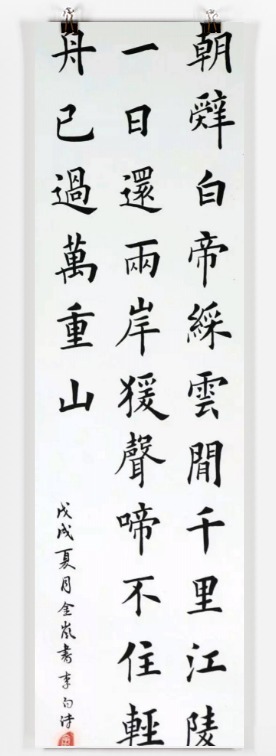 朝辭白帝綵雲閒千里江陵
一日還兩岸猨聲啼不住輕
舟已過萬重山
戊戌夏月金嵐書李白詩